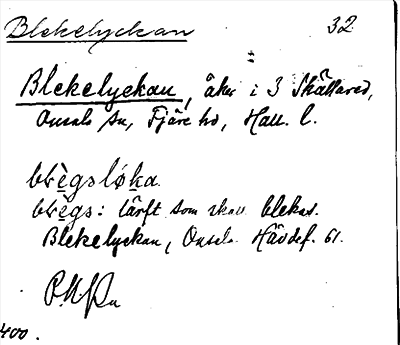 Blekelyckan 32
Blekelyckan, åker i 3 Skällared,
Onsala sn, Fjäre hd, Hall. l.
blègsløka.
blègs: lärft som skall blekas.
Blekelyckan, Onsala Hävdef. 61.
400.